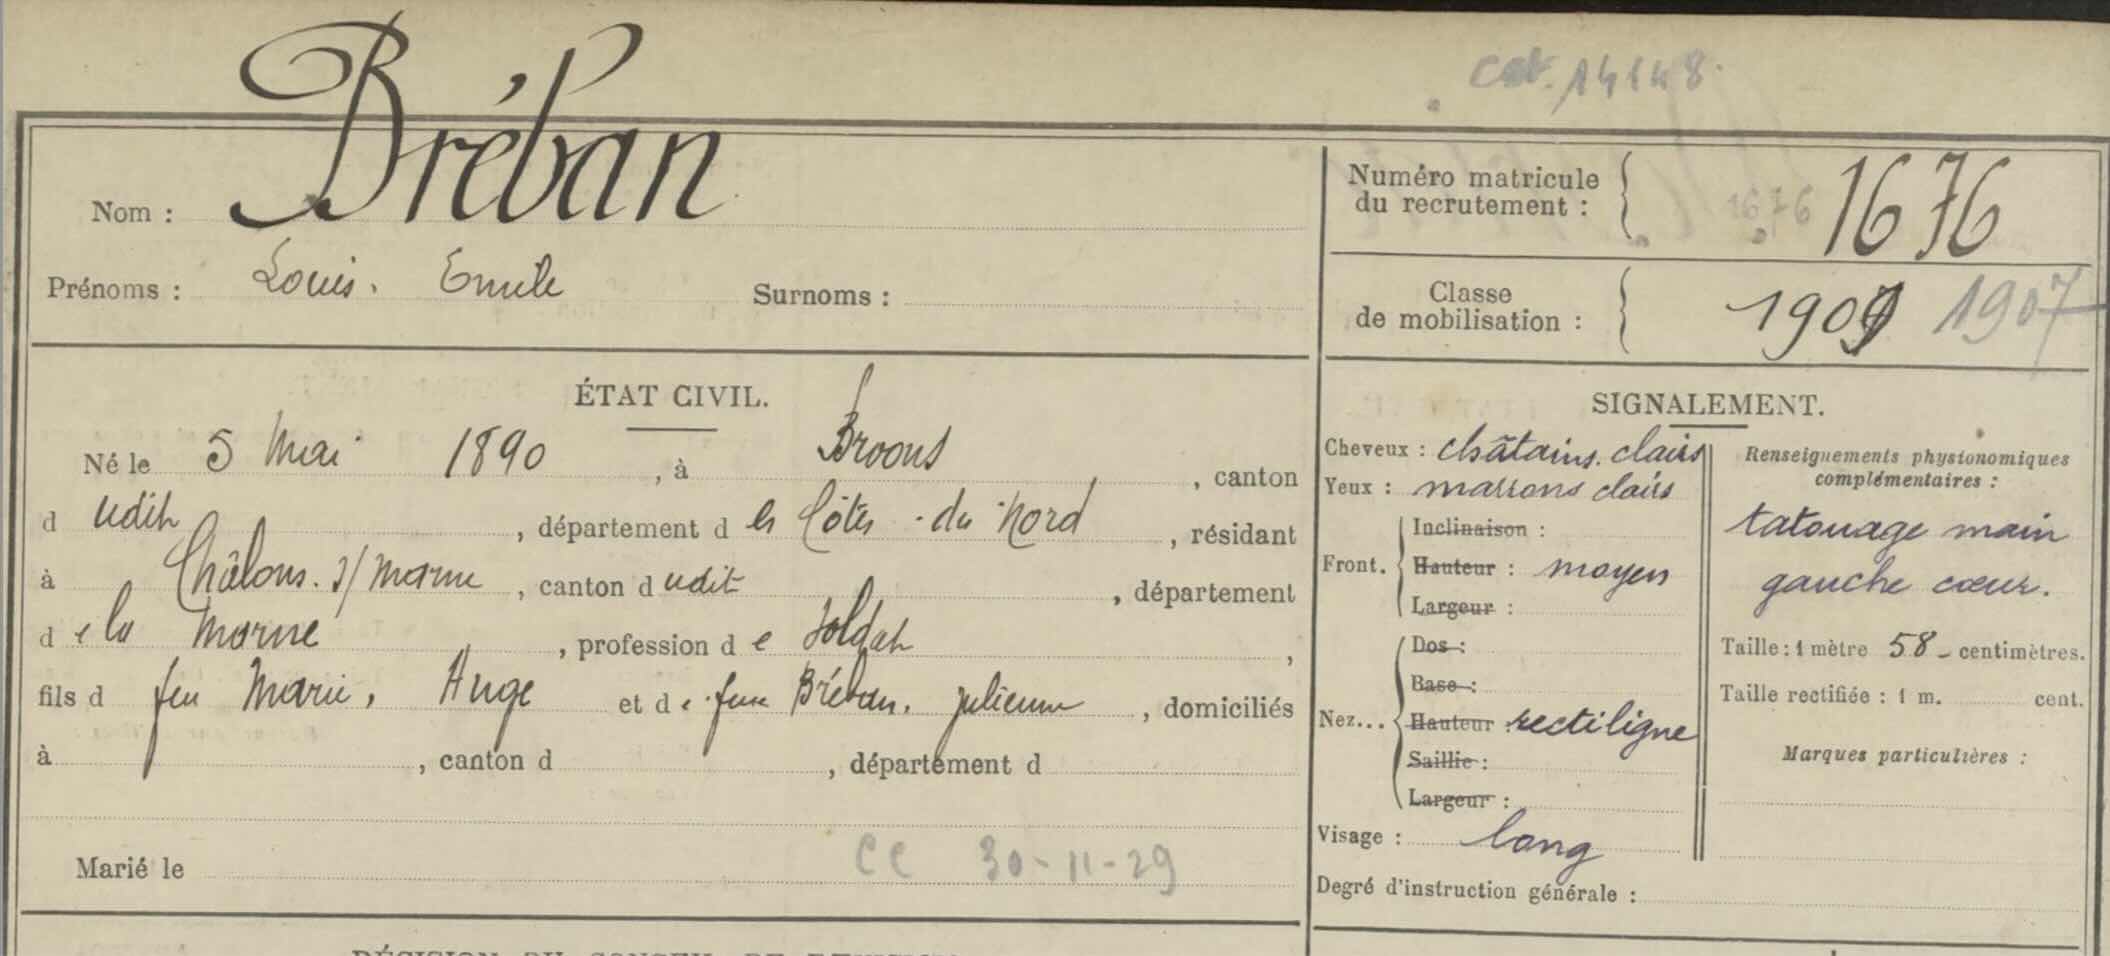 Cat. 14148.
Bréban
Nom :
Prénoms : Louis. Emile Surnoms :
Numéro matricule
du recrutement : 1676 1676
Classe
de mobilisation : 1909 1907
ÉTAT CIVIL.
Né le 5 Mai 1890, à Broons, canton
d udit, département d es Côtes-du-Nord, résidant
à Châlons. s/ Marne, canton d udit, département
d e la Marne, profession d e Soldat,
fils d feu Marie, Ange et d e feue Bréban, julienne, domiciliés
à, canton d, département d
Marié le
CC 30-11-29
SIGNALEMENT.
Cheveux : châtains. clairs
Yeux : marrons clairs
Inclinaison :
Front. Hauteur : moyen
Largeur :
Dos :
Base :
Nez... Hauteur : rectiligne
Saillie :
Largeur :
Visage : long
Degré d'instruction générale :
Renseignements physionomiques
complémentaires :
tatouage main
gauche cœur.
Taille : 1 mètre 58 - centimètres.
Taille rectifiée : 1 m. cent.
Marques particulières :